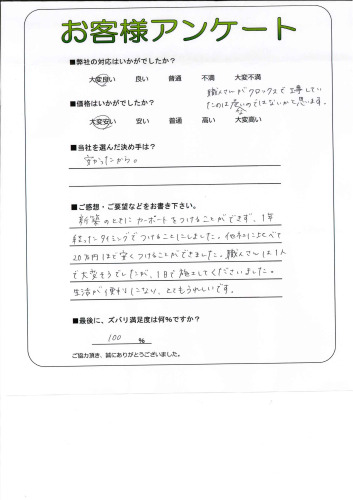 お客様アンケート
■弊社の対応はいかがでしたか？
大変良い　良い　普通　不満　大変不満
職人さんがクロックスで工事してい
たのは危いのではないかと思います。
■価格はいかがでしたか？
大変安い　安い　普通　高い　大変高い
■当社を選んだ決め手は？
安かったから。
■ご感想・ご要望などをお書き下さい。
新築のときにカーポートをつけることができず、1年
経ったタイミングでつけることにしました。他社に比べて
20万円ほど安くつけることができました。職人さんは1人
で大変そうでしたが、1日で施工してくださいました。
生活が便利になり、とてもうれしいです。
■最後に、ズバリ満足度は何%ですか？
100 %
ご協力頂き、誠にありがとうございました。